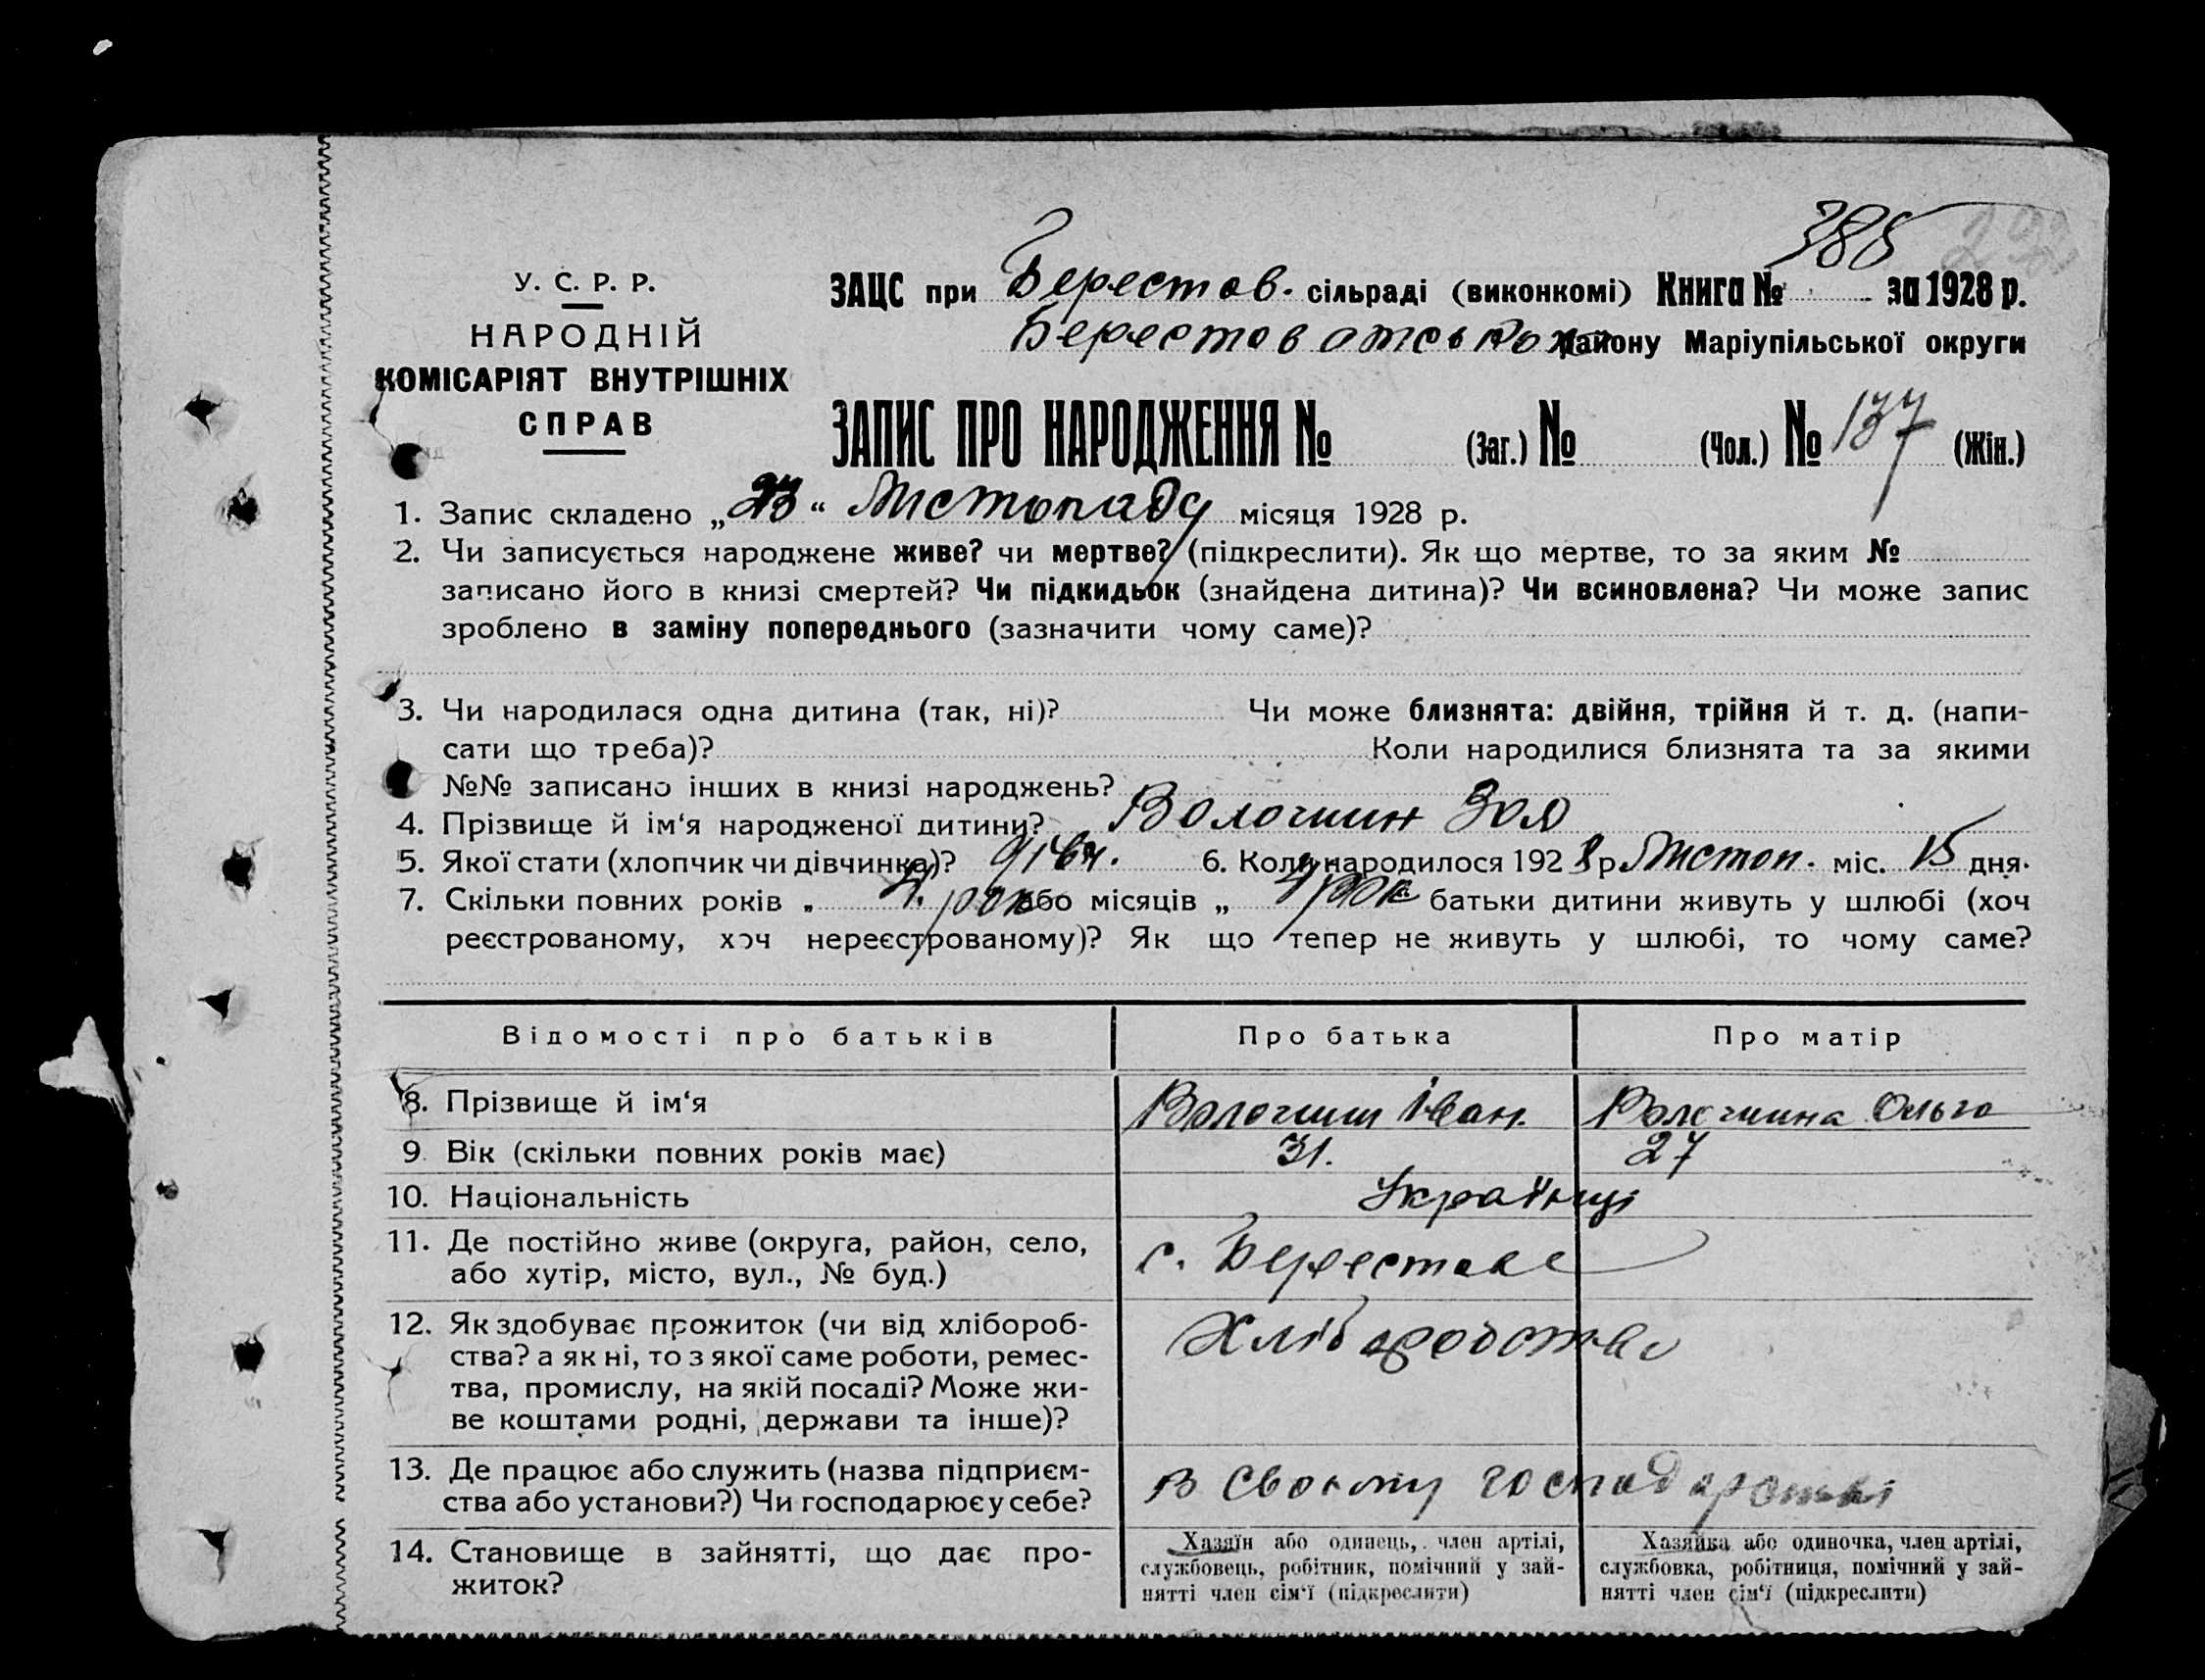 385
У. С. Р. Р.
НАРОДНІЙ
КОМІСАРІЯТ ВНУТРІШНІХ
СПРАВ
ЗАЦС при Берестов. сільраді (виконкомі) Книга № за 1928 р.
району Маріупільської округи
ЗАПИС ПРО НАРОДЖЕННЯ № (Заг.) № (Чол.) № 137 (Жін.)
1. Запис складено „23“ Листопаду місяця 1928 р.
2. Чи записується народжене живе? чи мертве? (підкреслити). Як що мертве, то за яким №
записано його в книзі смертей? Чи підкидьок (знайдена дитина)? Чи всиновлена? Чи може запис
зроблено в заміну попереднього (зазначити чому саме)?
3. Чи народилася одна дитина (так, ні)? Чи може близнята: двійня, трійня й т. д. (напи-
сати що треба)? Коли народилися близнята та за якими
№№ записано інших в книзі народжень?
4. Прізвище й ім‘я народженої дитини? Волошин Зоя
5. Якої стати (хлопчик чи дівчинка)? дівч. 6. Коли народилося 1928 р Листоп. міс. 15 дня.
7. Скільки повних років „ або місяців „ батьки дитини живуть у шлюбі (хоч
реєстрованому, хоч нереєстрованому)? Як що тепер не живуть у шлюбі, то чому саме?
Відомості про батьків Про батька Про матір
8. Прізвище й ім‘я Волошин Іван. Волошина Ольга
9. Вік (скільки повних років має) 31. 27
10. Національність Українці
11. Де постійно живе (округа, район, село, с. Берестове
або хутір, місто, вул., № буд.)
12. Як здобуває прожиток (чи від хліборoб- Хліборобства
ства? а як ні, то з якої саме роботи, ремес-
тва, промислу, на якій посаді? Може жи-
ве коштами родні, держави та інше)?
13. Де працює або служить (назва підприєм- В своєму господарстві
ства або установи?) Чи господарює у себе?
14. Становище в зайнятті, що дає про-
житок?
Хазяїн або одинець, член артілі,
службовець, робітник, помічний у зай-
нятті член сім‘ї (підкреслити)
Хазяйка або одиночка, член артілі,
службовка, робітниця, помічний у зай-
нятті член сім‘ї (підкреслити)